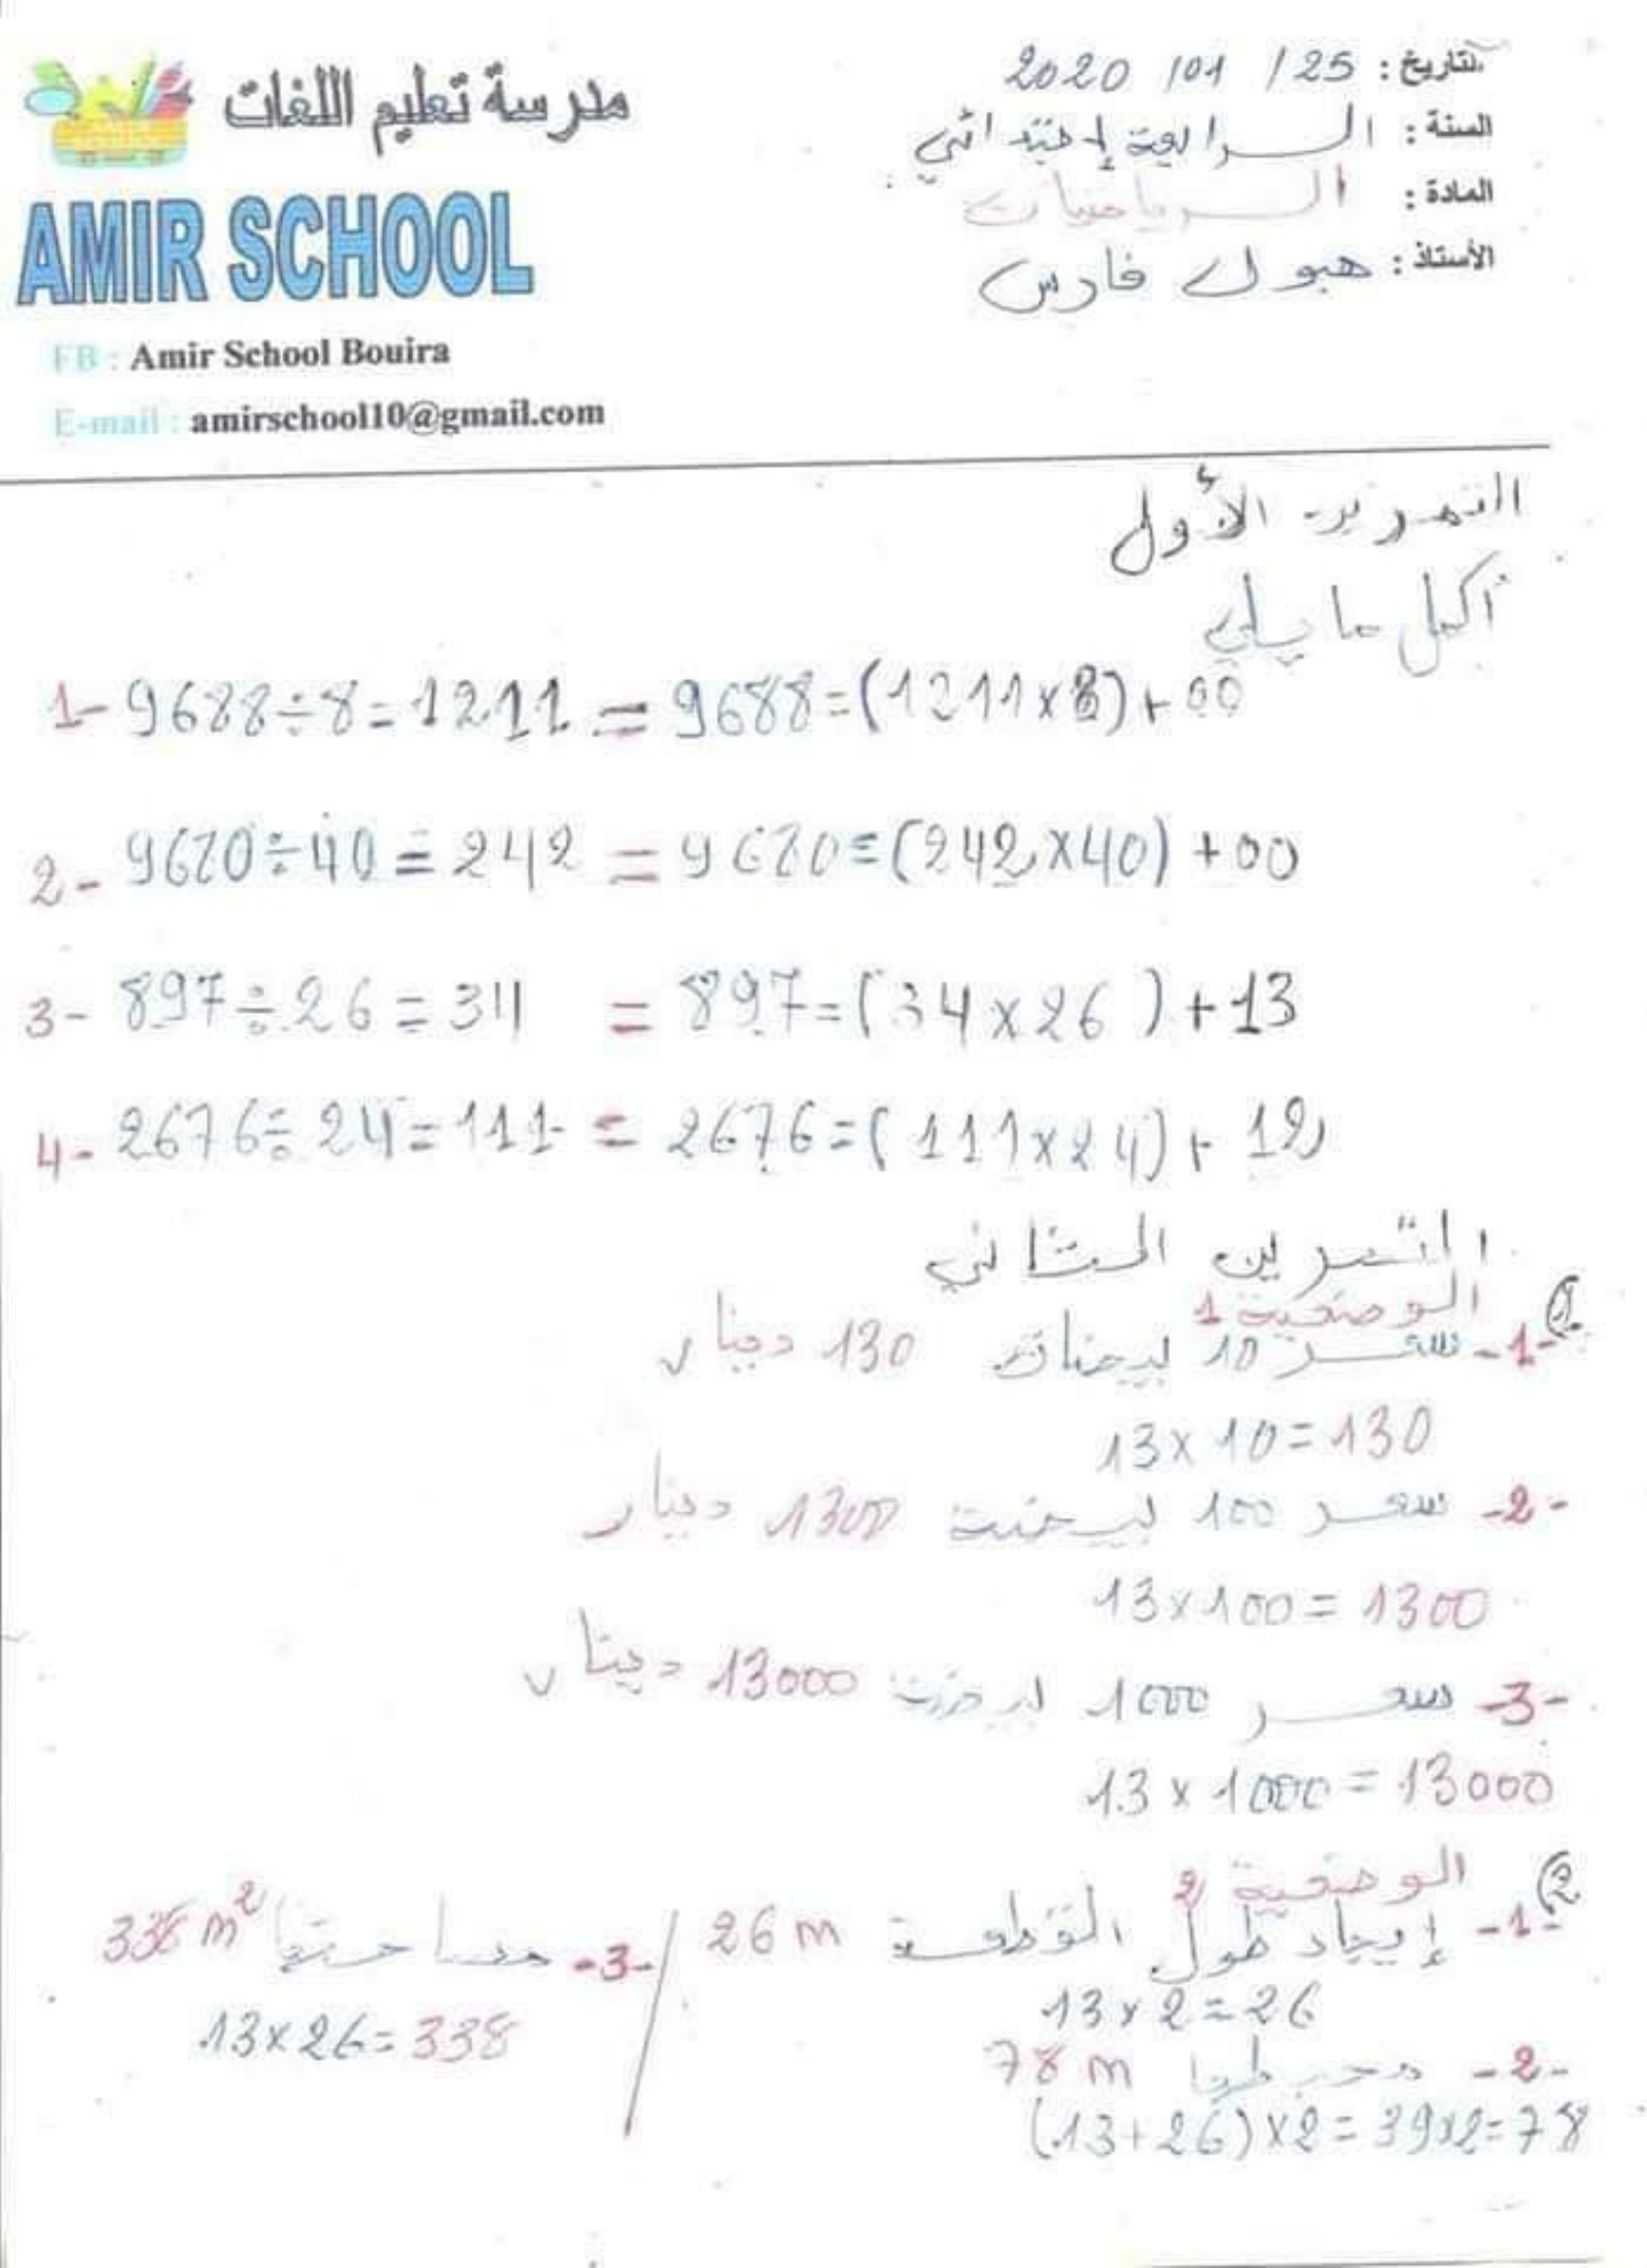 مدرسة تعليم اللغات
AMIR SCHOOL
FB : Amir School Bouira
E-mail : amirschool10@gmail.com
التاريخ : 25 / 01 / 2020
السنة : الرابعة إبتدائي
المادة : الرياضيات
الأستاذ : هبول فارس
التمرين الأول
أكمل ما يلي
1- 9688÷8=1211 = 9688=(1211×8)+00
2- 9680÷40=242 = 9680=(242×40)+00
3- 897÷26=34 = 897=(34×26)+13
4- 2676÷24=111 = 2676=(111×24)+12
التمرين الثاني
1) الوضعية 1
-1- سعر 10 بيضات 130 دينار
13×10=130
-2- سعر 100 بيضة 1300 دينار
13×100=1300
-3- سعر 1000 بيضة 13000 دينار
13×1000=13000
2) الوضعية 2
-1- إيجاد طول القطعة 26 m
13×2=26
-2- محيطها 78 m
(13+26)×2=39×2=78
-3- مساحتها 338 m²
13×26=338